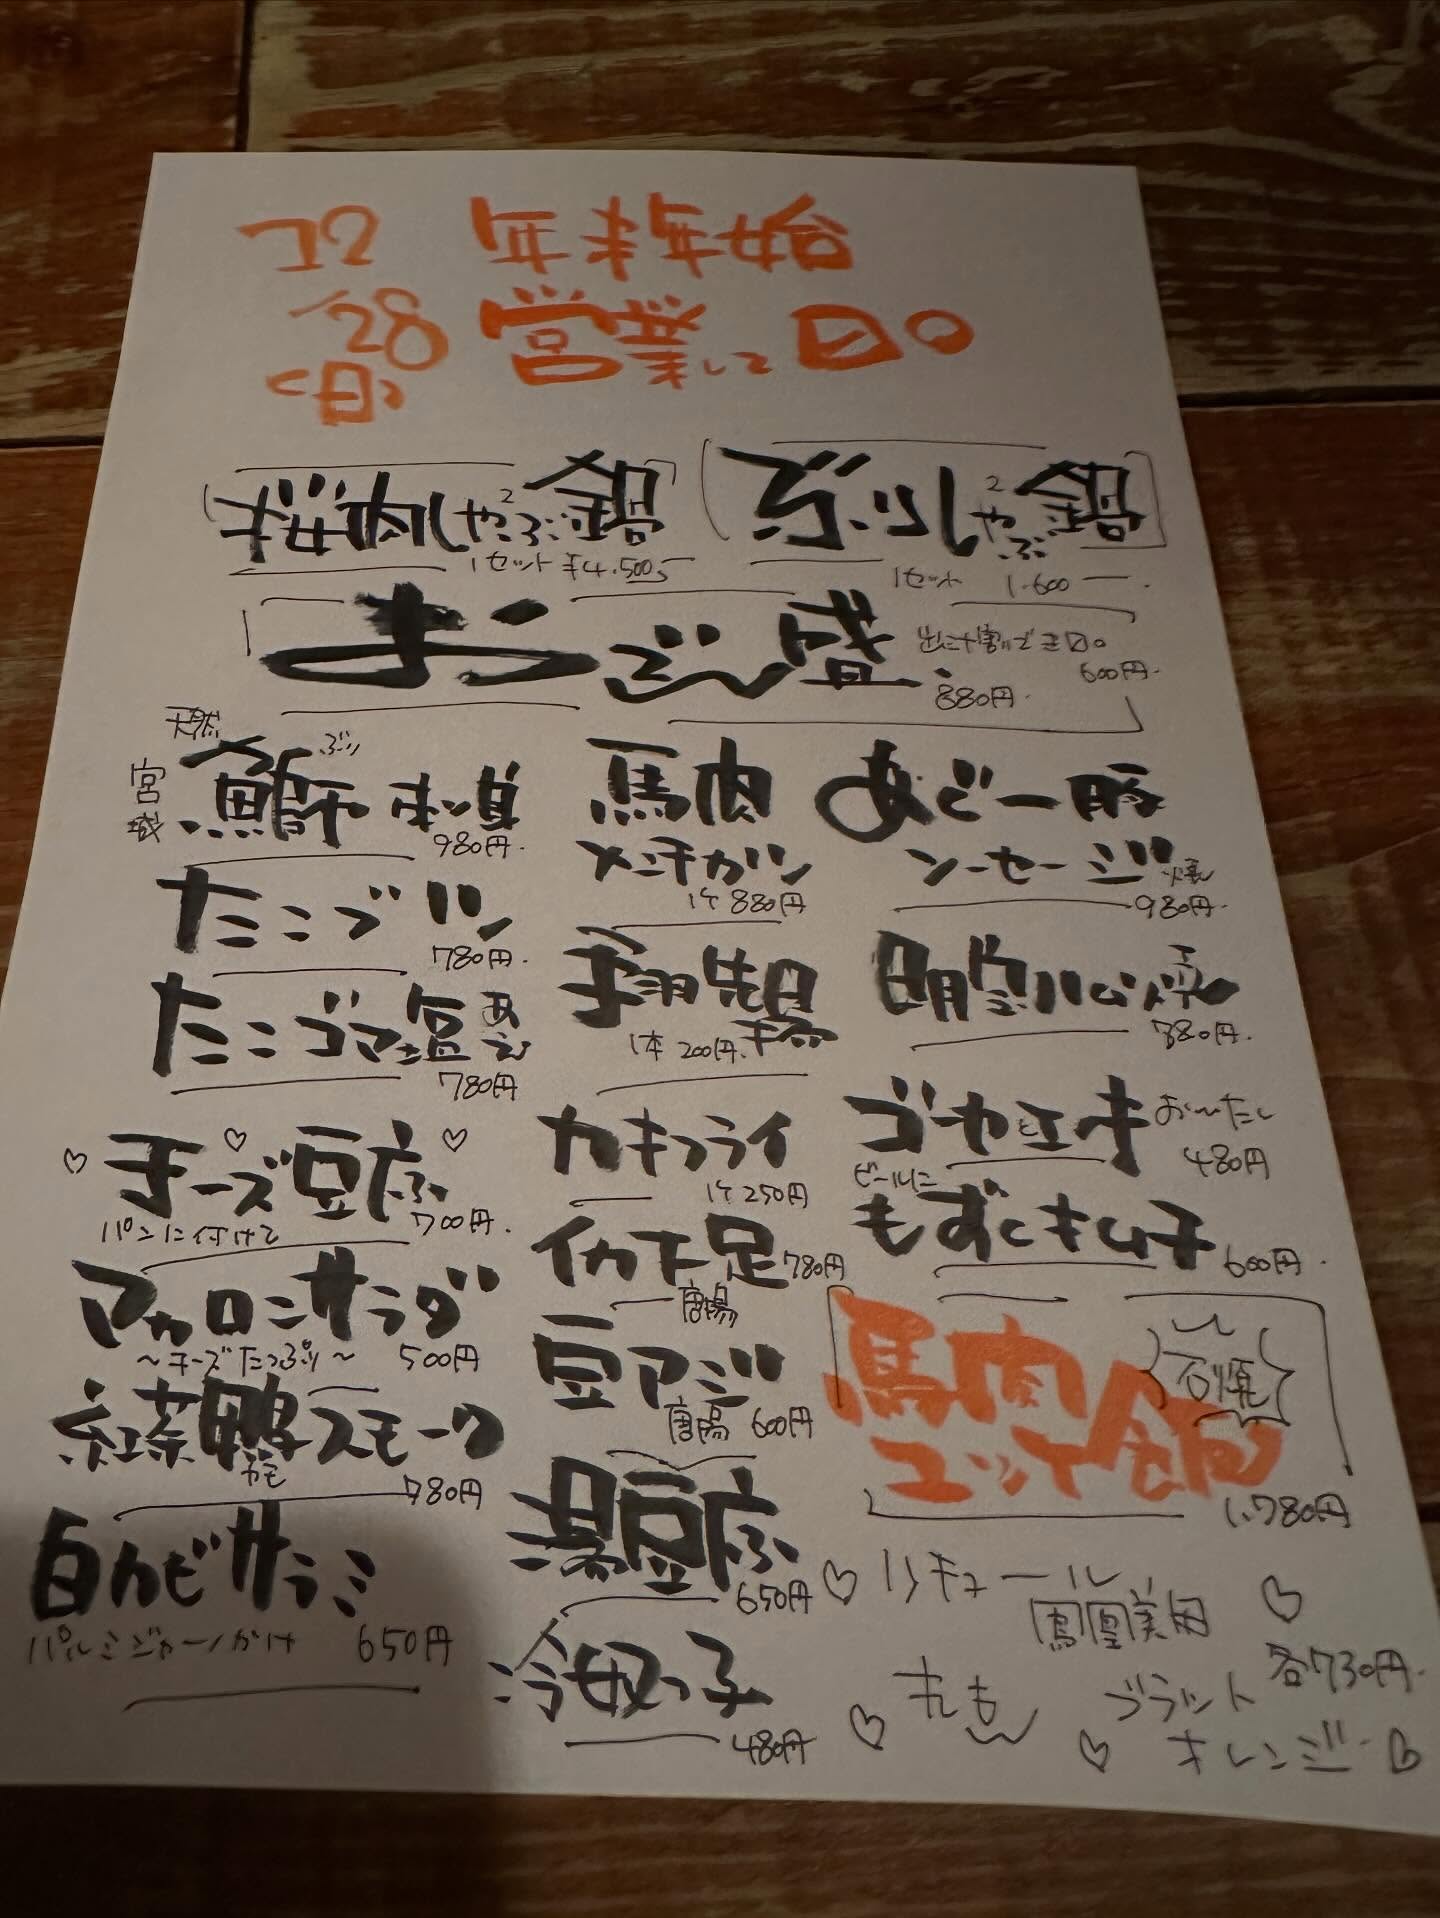 12 年末年始
/28 営業してます。
(日)
桜肉しゃぶ2鍋
1セット ¥4,500
ぶりしゃぶ2鍋
1セット 1,600
おでん盛
出汁割りできます。
600円
880円
天然
宮城
鰤刺身
ぶり
980円
たこブツ
780円
たこゴマ塩あえ
780円
チーズ豆腐
パンに付けて
700円
マカロニサラダ
〜チーズたっぷり〜 500円
紅茶鴨スモーク
カモ
780円
白カビサラミ
パルミジャーノかけ 650円
馬肉
メンチカツ
1ケ 880円
手羽先揚
1本 200円
カキフライ
1ケ 250円
イカ下足
唐揚
780円
豆アジ
唐揚 600円
湯豆腐
650円
冷奴っ子
480円
あぐー豚
ソーセージ焼
980円
明宝ハム焼
880円
ゴーヤとエノキ
480円
ビールに
もずくキムチ
600円
馬肉
ユッケ
石焼
1,780円
リキュール
鳳凰美田
各730円
もも
ブラッド
オレンジ